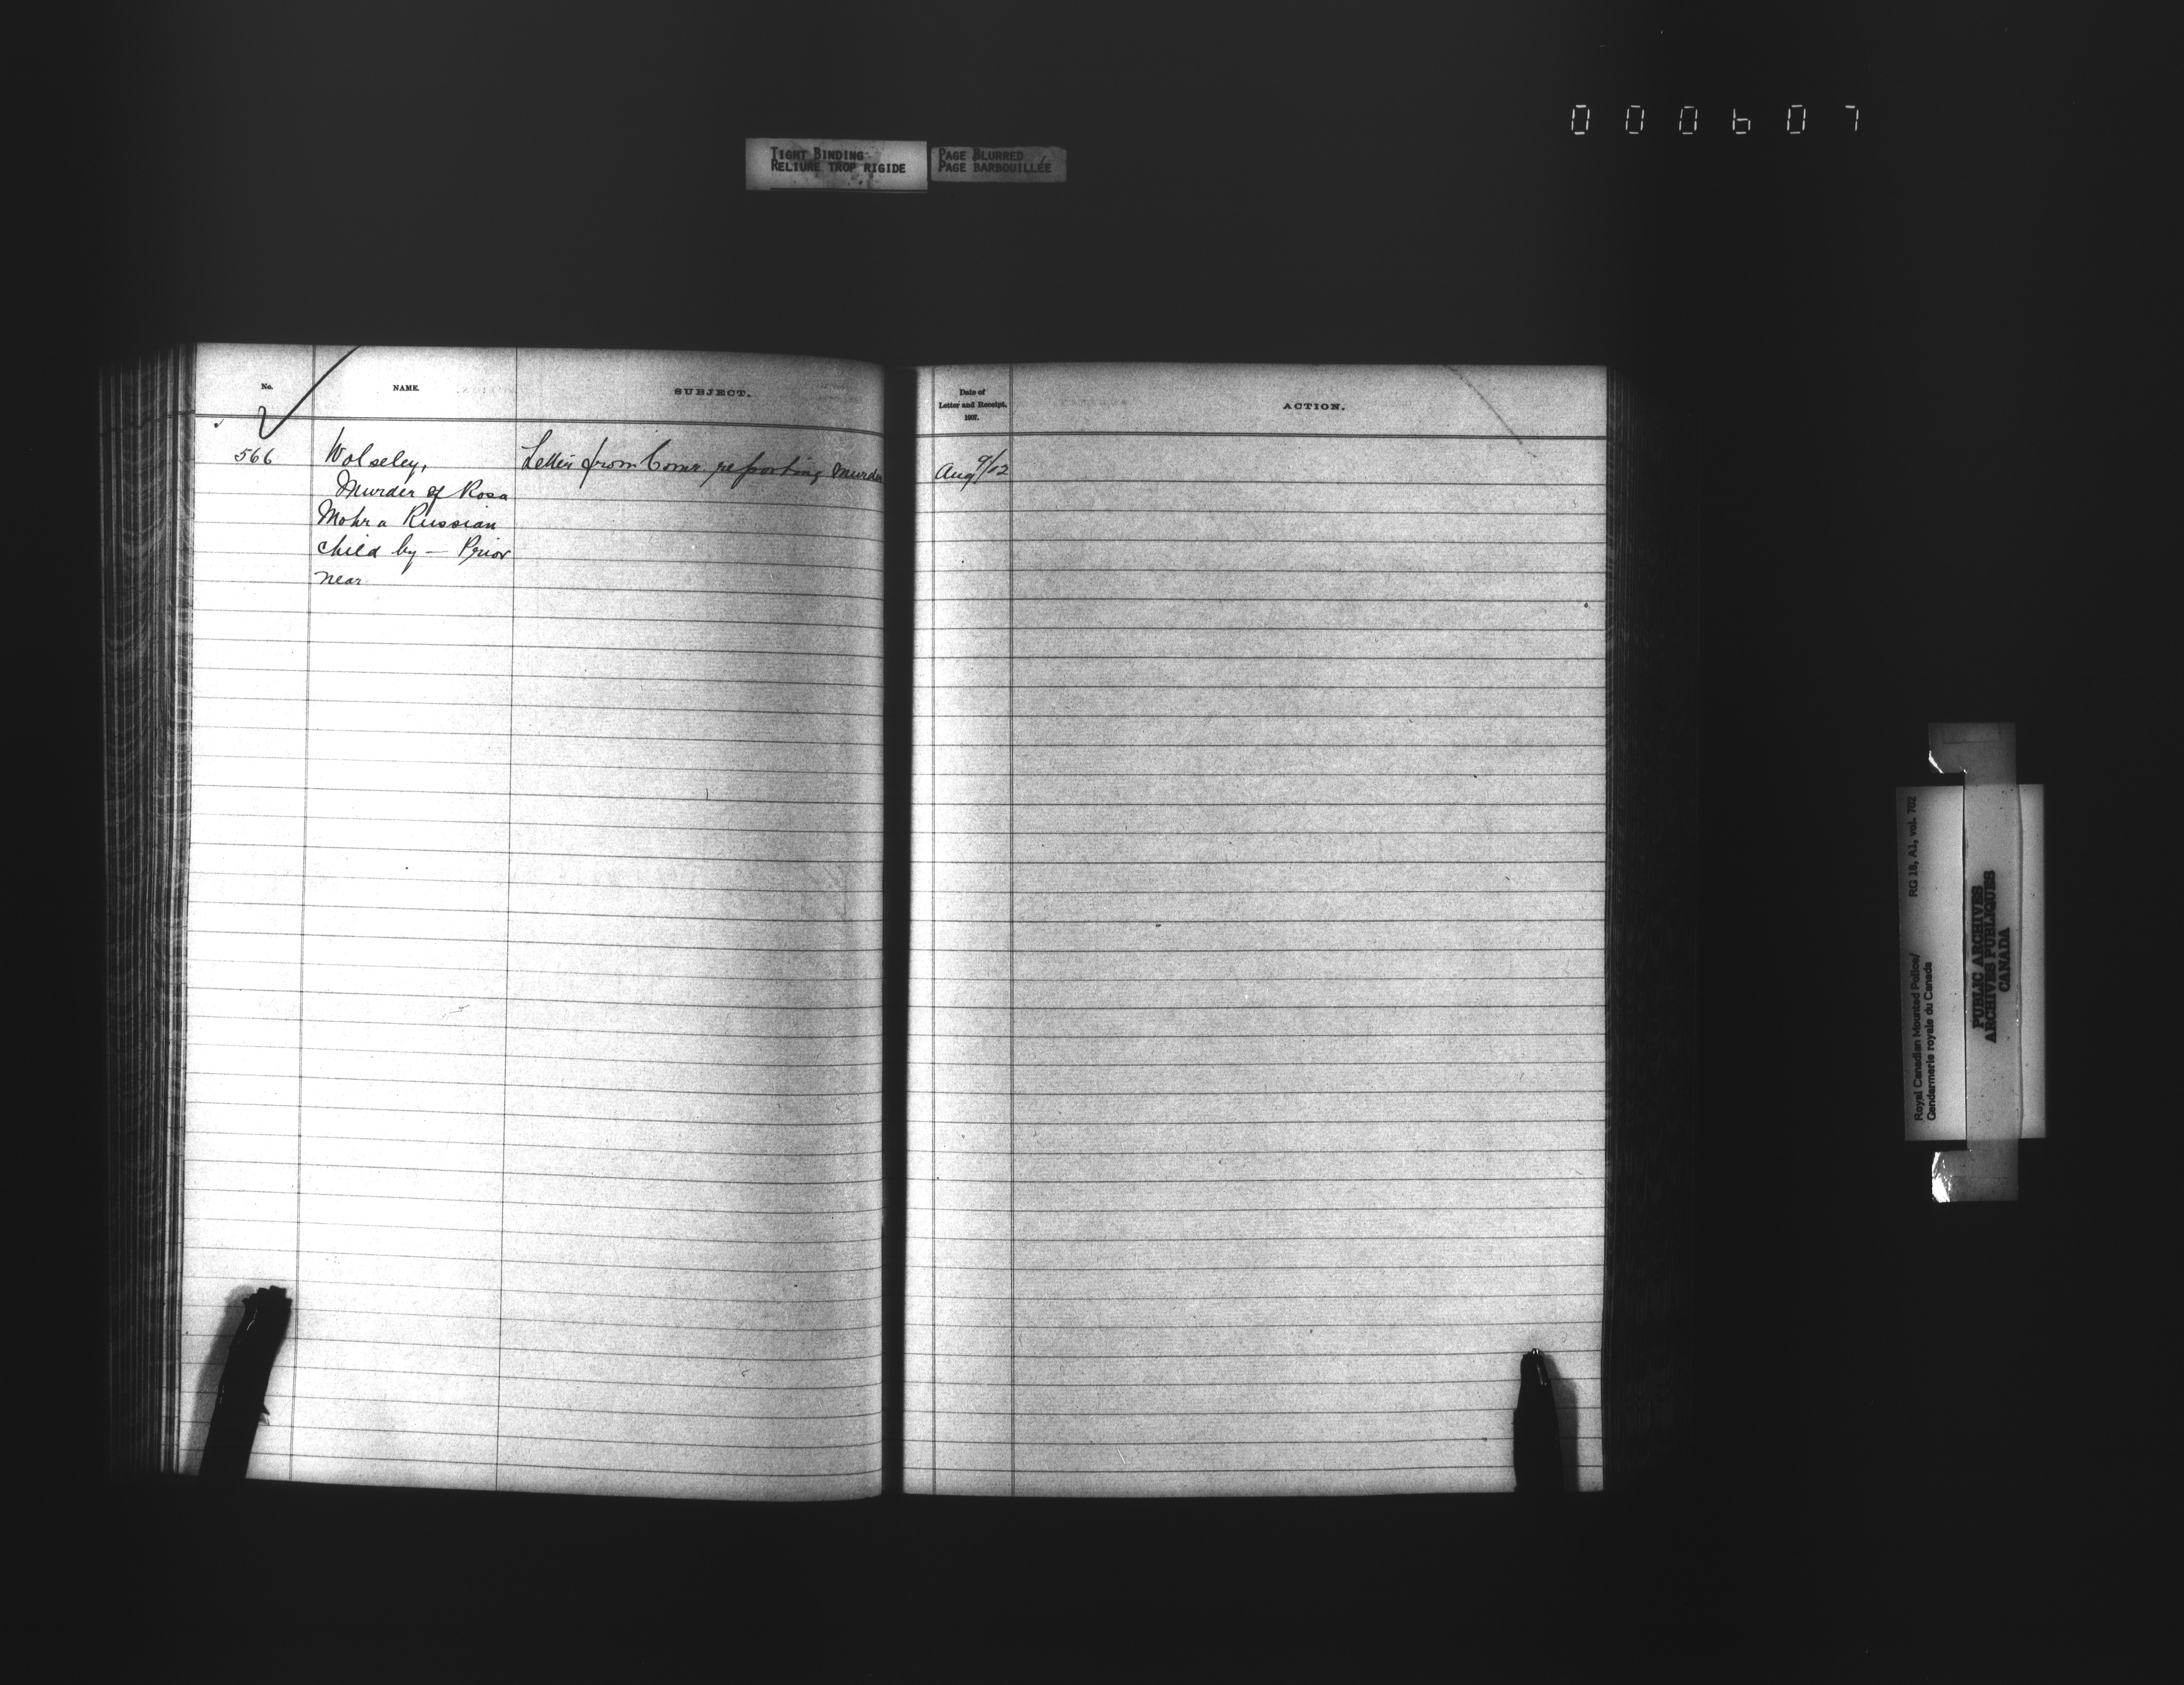 000607
TIGHT BINDING
RELIURE TROP RIGIDE
PAGE BLURRED
PAGE BARBOUILLÉE
No.
NAME.
SUBJECT.
566
Wolseley,
Murder of Rosa
Mohr a Russian
child by — Prior
near
Letter from Comr. reporting murder
Date of
Letter and Receipt.
1907.
ACTION.
Aug 9/12
Royal Canadian Mounted Police/
Gendarmerie royale du Canada
RG 18, A1, vol. 702
PUBLIC ARCHIVES
ARCHIVES PUBLIQUES
CANADA